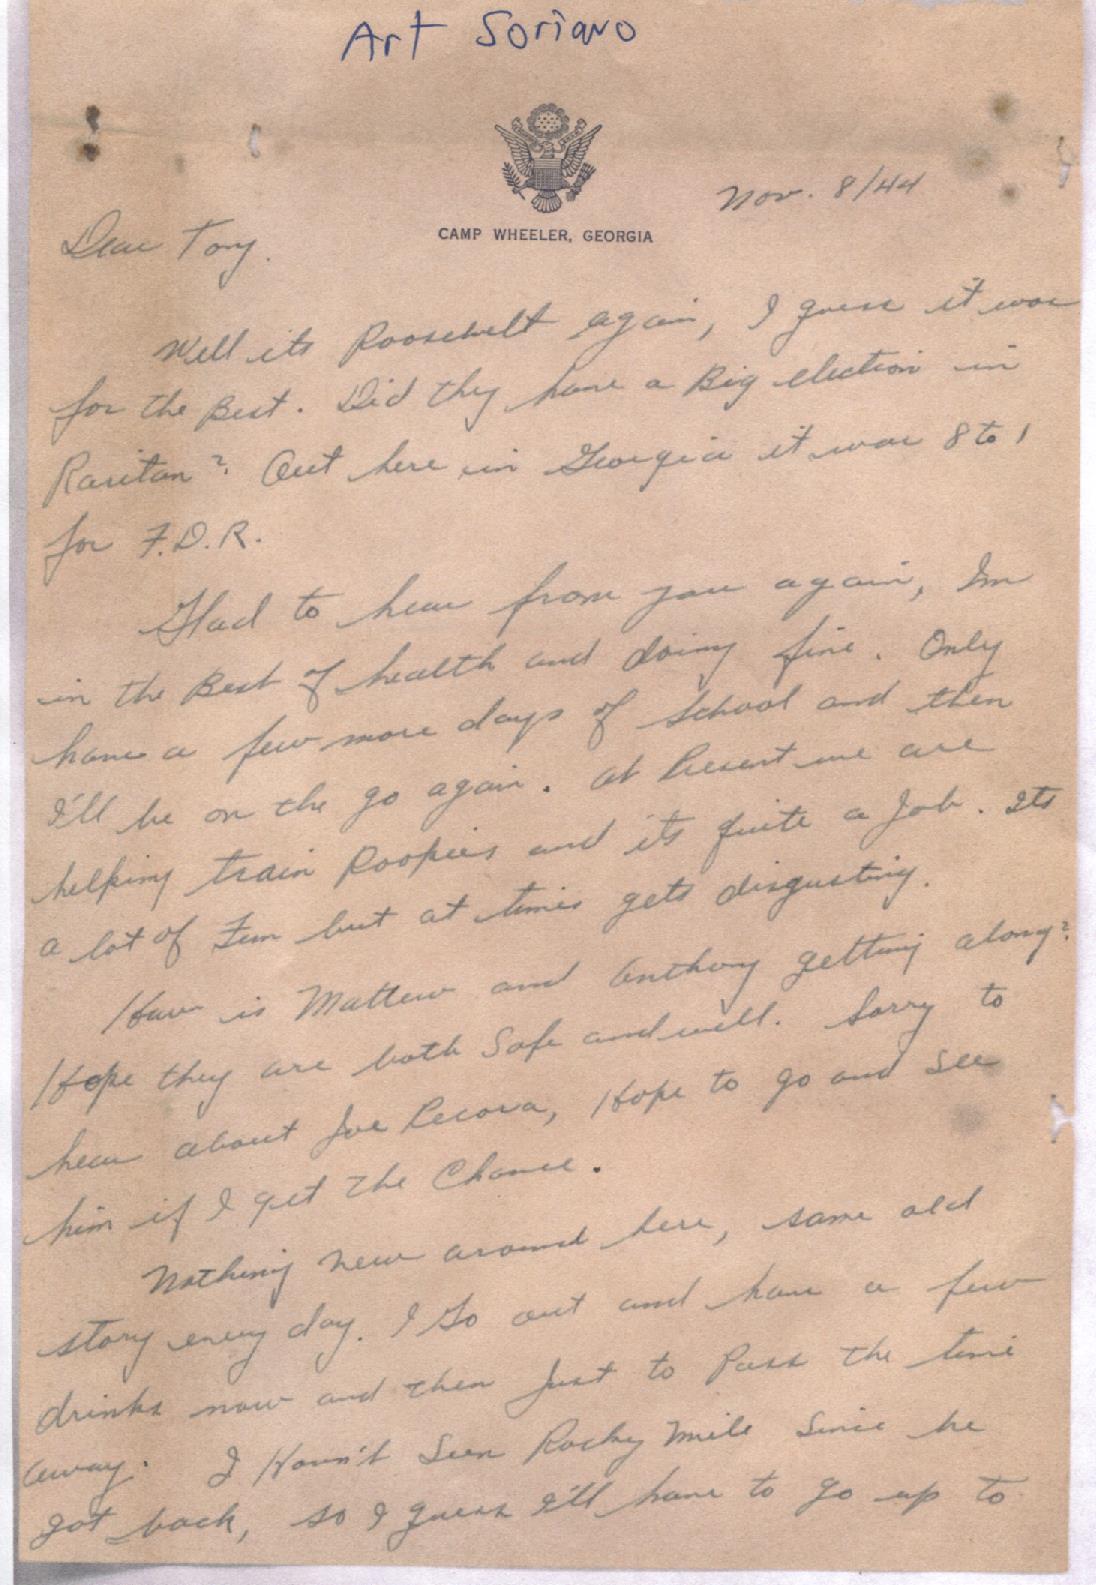 Art Soriano
CAMP WHEELER, GEORGIA
Nov. 8/44
Dear Tony.
Well its Roosevelt again, I guess it was
for the Best. Did they have a Big election in
Raritan? Out here in Georgia it was 8 to 1
for F.D.R.
Glad to hear from you again, Im
in the Best of health and doing fine. Only
have a few more days of School and then
I'll be on the go again. At Present we are
helping train Rookies and its quite a Job. Its
a lot of Fun but at times gets disgusting.
How is Mattew and Anthony getting along?
Hope they are both Safe and well. Sorry to
hear about Joe Pecora, Hope to go and See
him if I get the Chance.
Nothing new around here, same old
story every day. I Go out and have a few
drinks now and then Just to Pass the time
away. I Havn't Seen Rocky Mile Since he
got back, so I guess I'll have to go up to